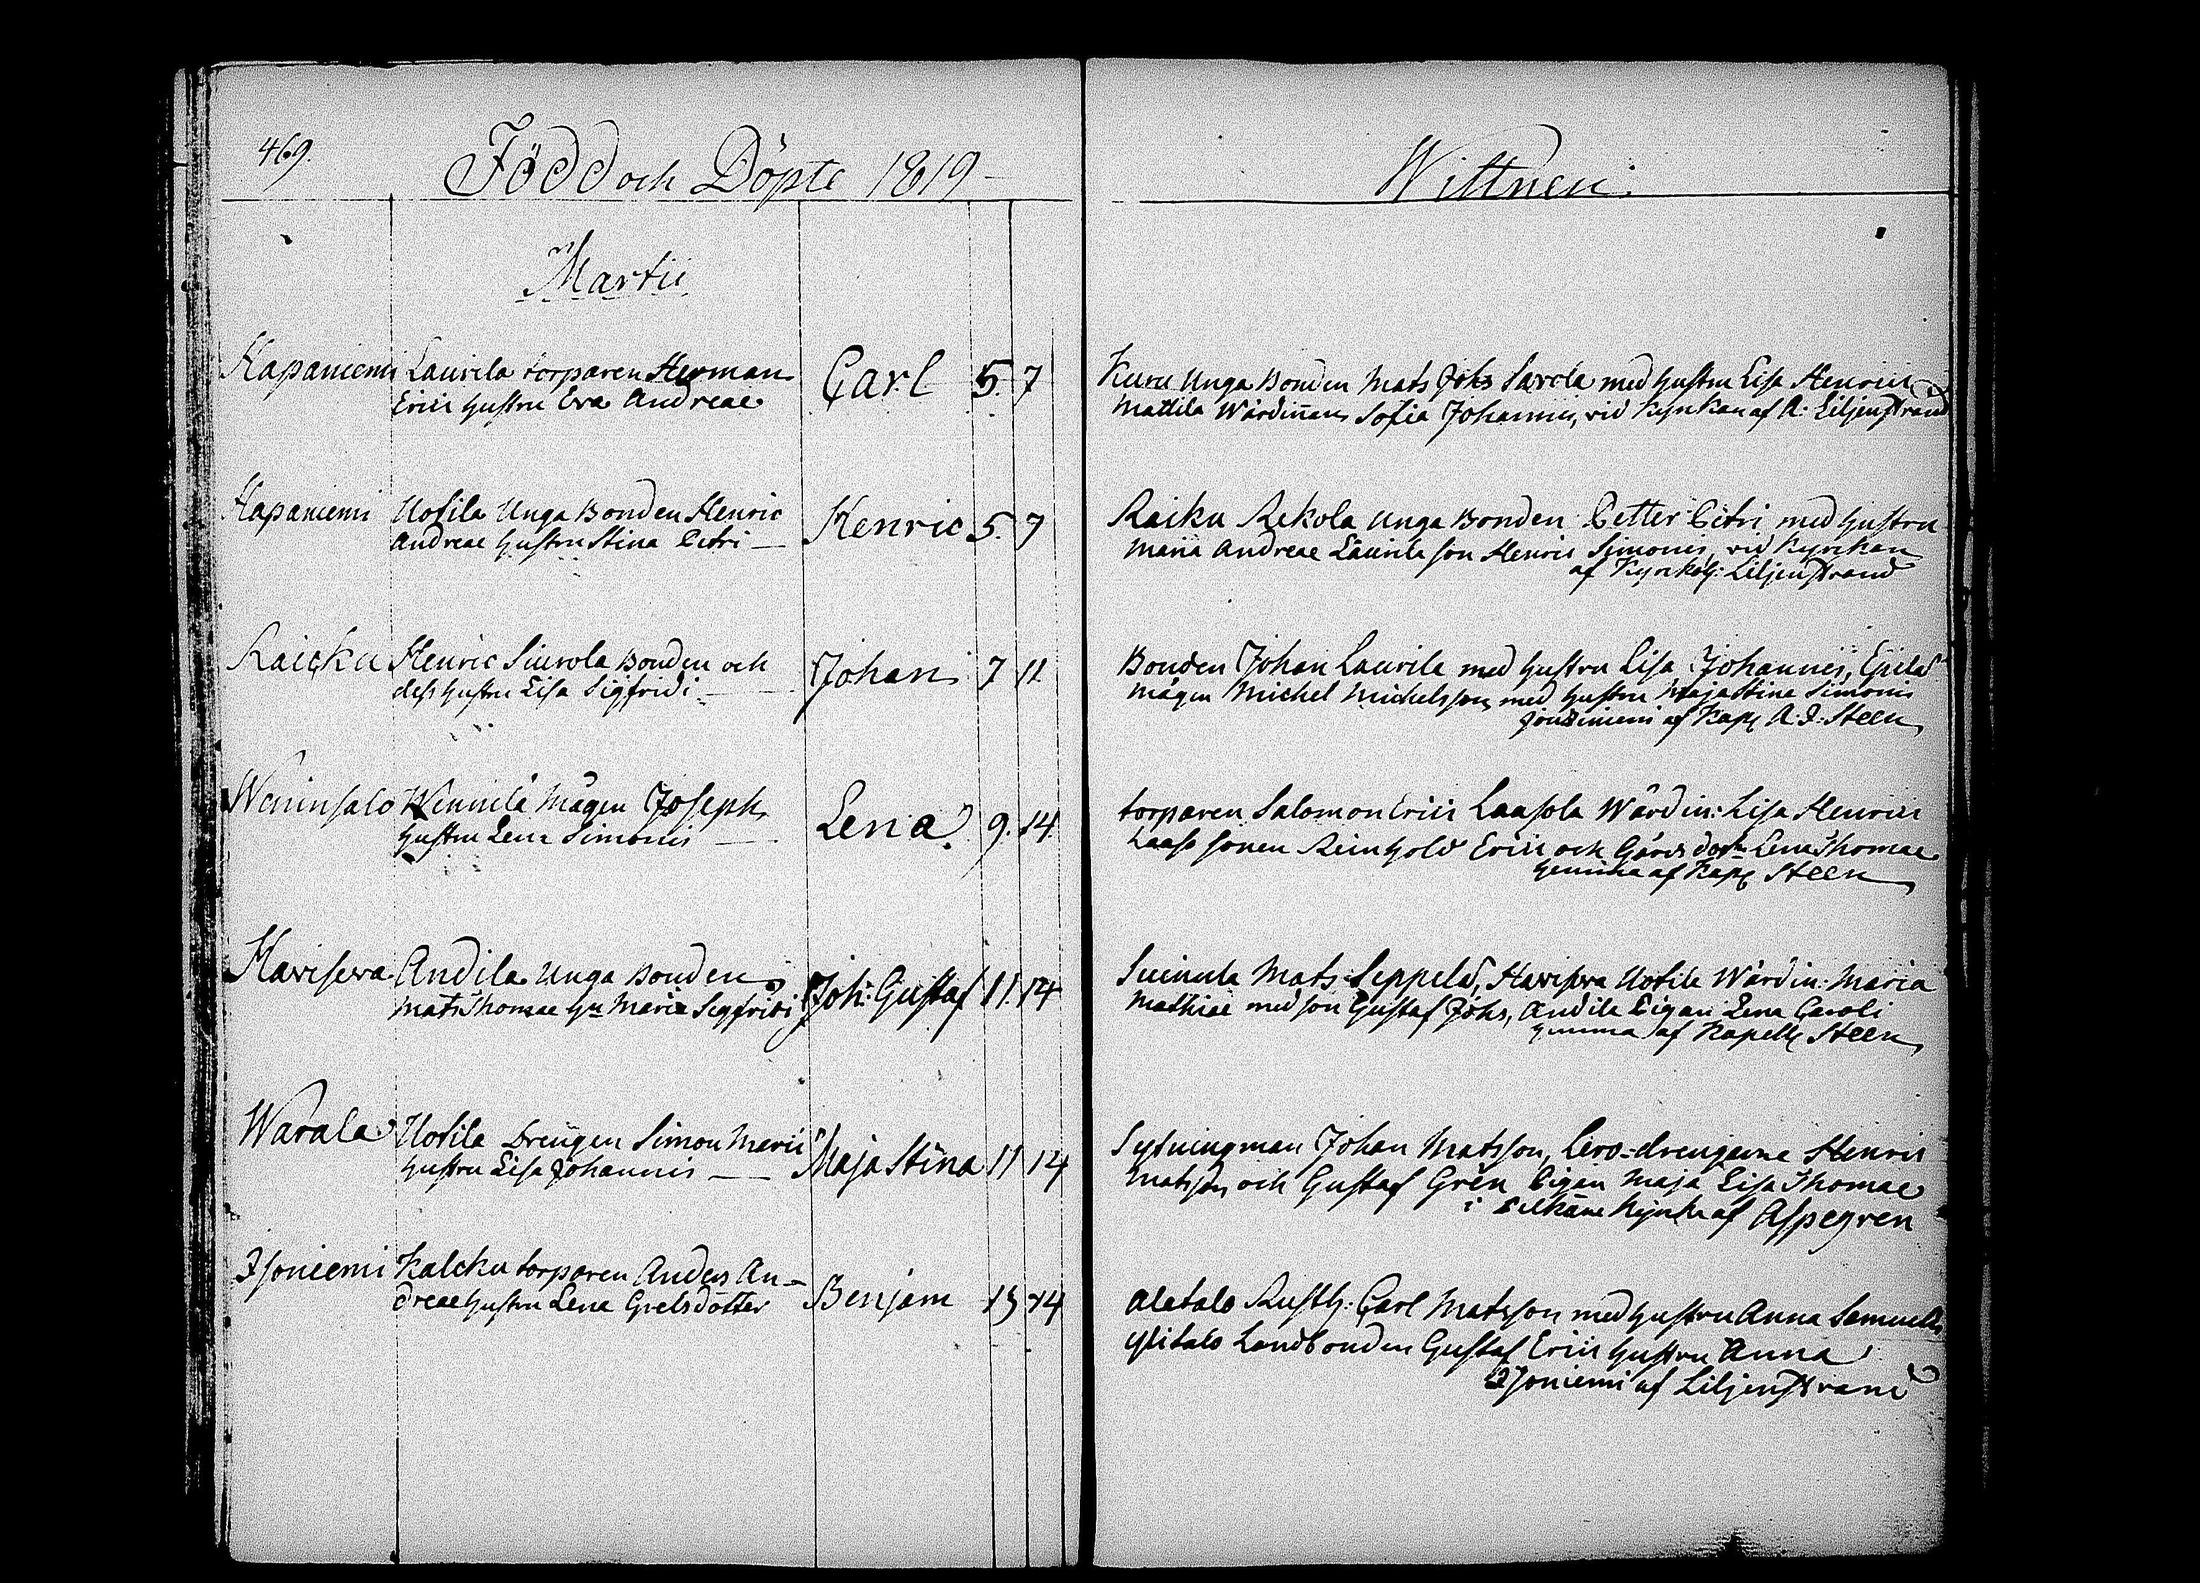 469.
Född och Döpte 1819
Wittnen.
Martii
Hapaniemi Laurila torparen Herman
Erici hustru Eva Andreae
Carl 5. 7
Kuru Unga Bonden Mats Johs Sarola med hustru Lisa Henrici
Mattila Wärdinnan Sofia Johannis, vid Kyrkan af A: Liljenstrand
Hapaniemi Uotila Unga Bonden Henric
Andreae hustru Stina Petri
Henric 5. 7
Raiku Rekola Unga Bonden Petter Petri med hustru
Maria Andreae Laurila son Henric Simonis, vid Kyrkan
af Kyrkoh: Liljenstrand
Raicku Henric Siurola Bonden och
dess hustru Lisa Sigfridi
Johan 7 11
Bonden Johan Laurila med hustru Lisa Johannis,
mågen Michel Michelsson med hustru Maja Stina Simonis
af Kapl A. J. Steen
Waninsalo mågen Joseph
hustru Lena Simonis
Lena 9. 14
torparen Salomon Erici Laasola Wärdin: Lisa Henrici
Laaso sonen Reinhold Erici och Lena Thomae
hemma af Kapl Steen
Harisera Andila Unga Bonden
Mats Thomae hu Maria Segfridi
Joh: Gustaf 11. 14
Suinula Mats Seppelä, Harisera Uotila Wärdin: Maria
Mathiae med son Gustaf Johs, Andila Pigan Lena Caroli
hemma af Kapell Steen
Warala Uotila Drengen Simon Marci
hustru Lisa Johannis
Maja Stina 11 14
Sytningman Johan Matsson, Pero-drengarne Henric
Matsson och Gustaf Grên Pigan Maja Lisa Thomae
i Kyrka af Aspegren
Isoniemi Kalcku torparen Anders An-
dreae hustru Lena Grelsdotter
Benjam 13 14
Alatalo Rusth: Carl Matsson med hustru Anna Samuels
Ylitalo Landbonden Gustaf Erici hustru Anna
Isoniemi af Liljenstrand